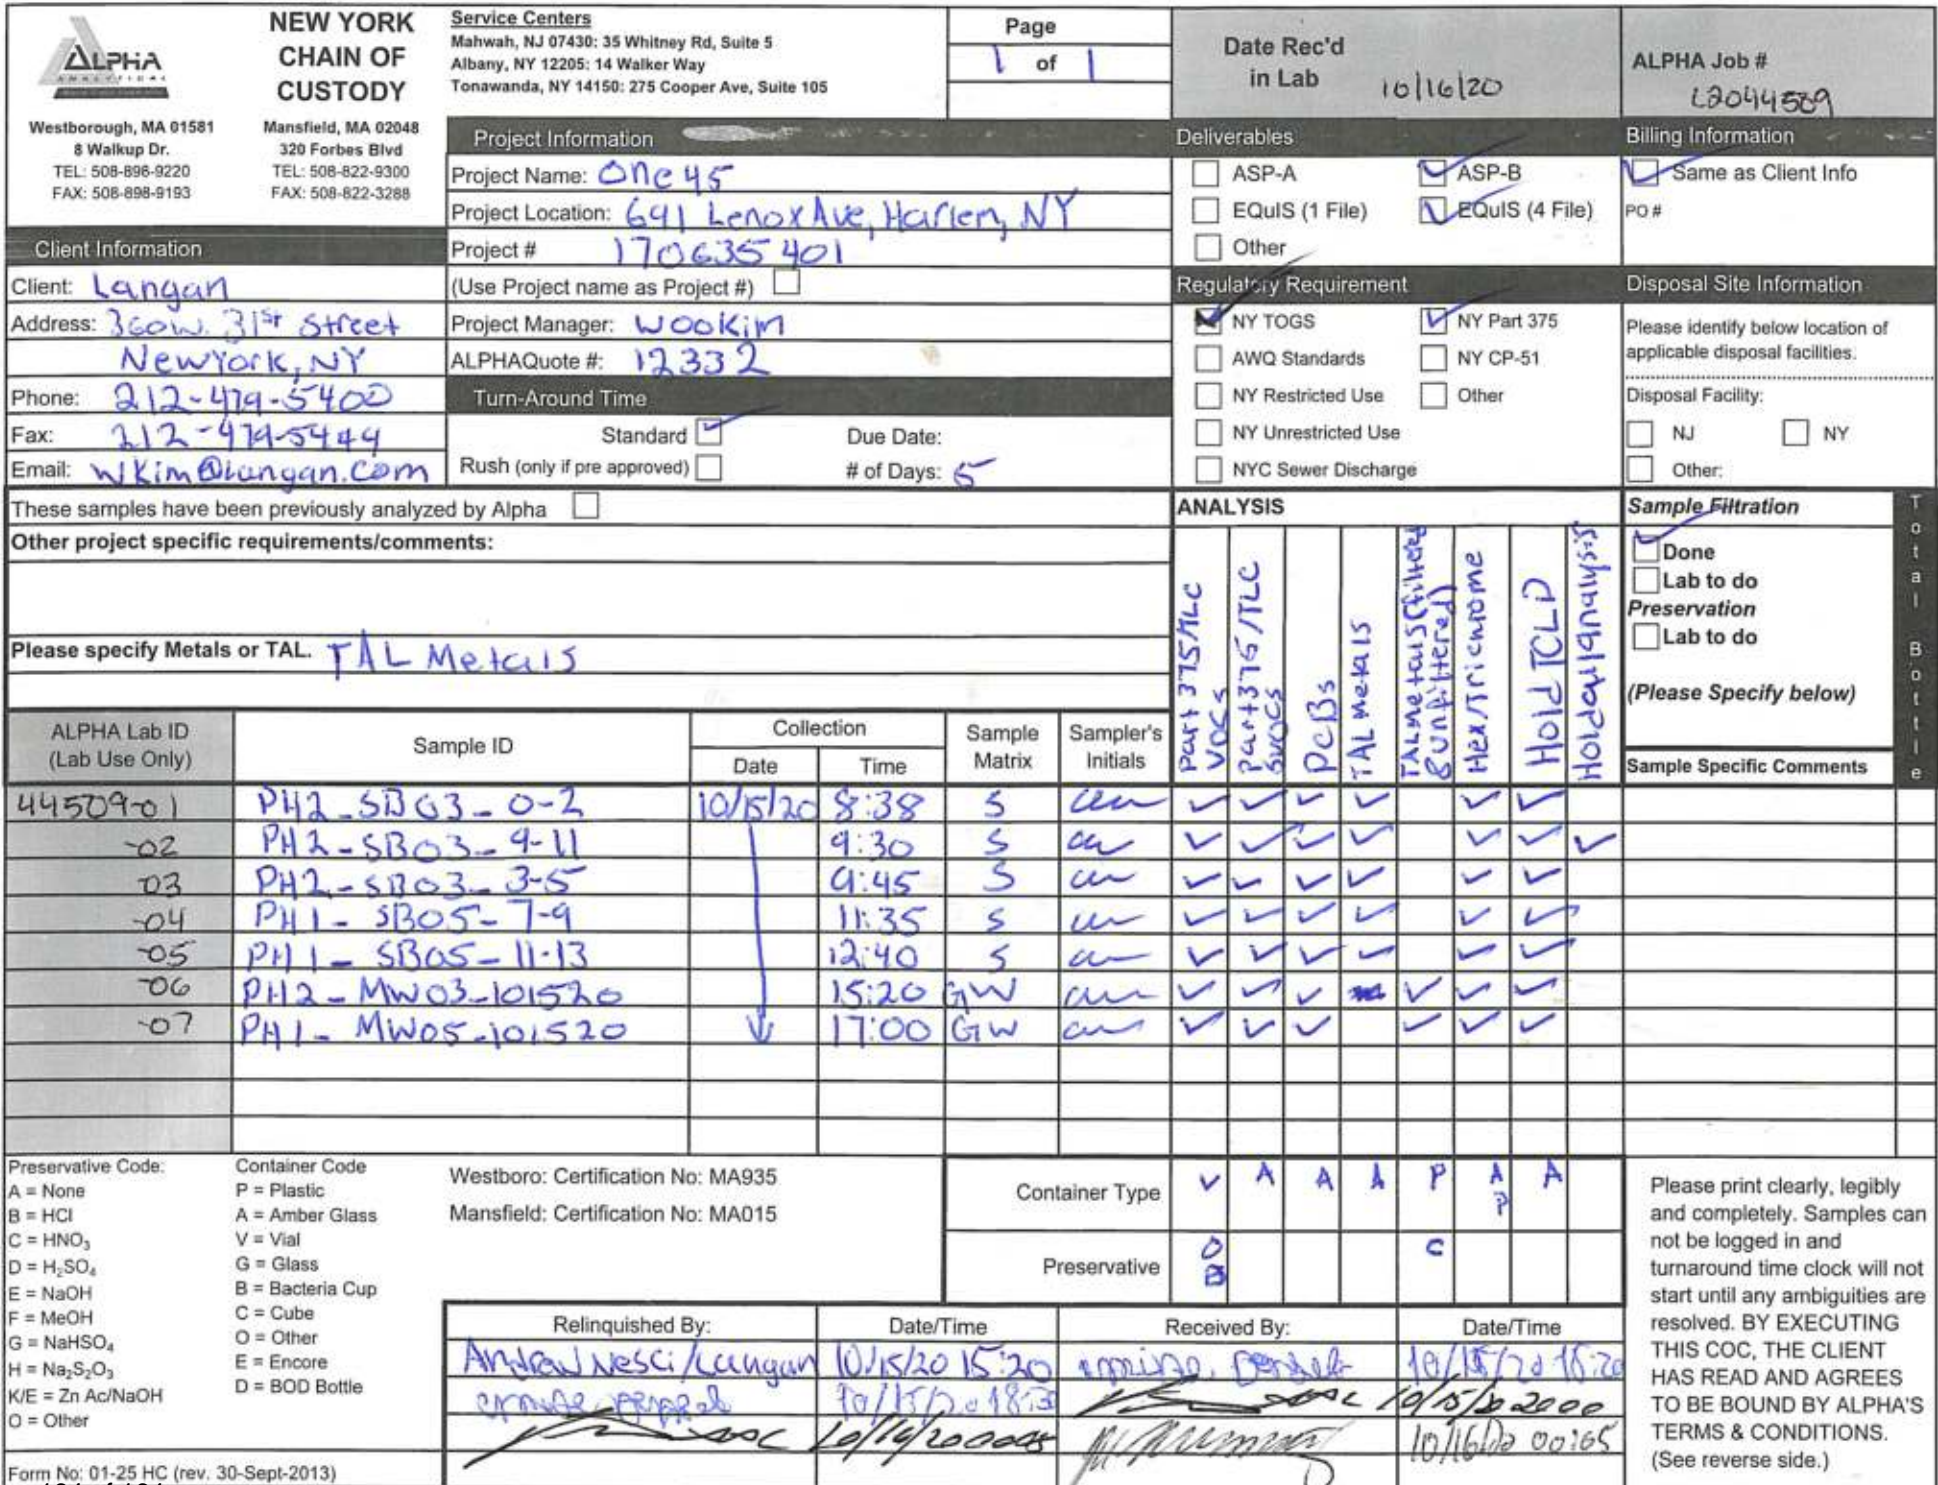 ALPHA
ANALYTICAL
Westborough, MA 01581
8 Walkup Dr.
TEL: 508-898-9220
FAX: 508-898-9193
NEW YORK
CHAIN OF
CUSTODY
Mansfield, MA 02048
320 Forbes Blvd
TEL: 508-822-9300
FAX: 508-822-3288
Service Centers
Mahwah, NJ 07430: 35 Whitney Rd, Suite 5
Albany, NY 12205: 14 Walker Way
Tonawanda, NY 14150: 275 Cooper Ave, Suite 105
Page
1 of 1
Date Rec'd
in Lab 10/16/20
ALPHA Job #
L2044509
Project Information
Project Name: One 45
Project Location: 691 Lenox Ave, Harlem, NY
Project # 170635401
(Use Project name as Project #)
Project Manager: WOOKim
ALPHAQuote #: 12332
Turn-Around Time
Standard Due Date:
Rush (only if pre approved) # of Days: 5
Client Information
Client: Langan
Address: 360 W. 31st Street
New York, NY
Phone: 212-479-5400
Fax: 212-479-5444
Email: WKim@Langan.com
Deliverables
ASP-A ASP-B
EQuIS (1 File) EQuIS (4 File)
Other
Regulatory Requirement
NY TOGS NY Part 375
AWQ Standards NY CP-51
NY Restricted Use Other
NY Unrestricted Use
NYC Sewer Discharge
Billing Information
Same as Client Info
PO #
Disposal Site Information
Please identify below location of
applicable disposal facilities.
Disposal Facility:
NJ NY
Other:
These samples have been previously analyzed by Alpha
Other project specific requirements/comments:
Please specify Metals or TAL. TAL Metals
ANALYSIS
Part 375/TLC VOCs
Part 375/TLC SVOCs
PCBs
TAL Metals
TAL metals (filtered & unfiltered)
Hex/Trichrome
Hold TCLP
Hold all analysis
Sample Filtration
Done
Lab to do
Preservation
Lab to do
(Please Specify below)
Sample Specific Comments
Total Bottle
ALPHA Lab ID
(Lab Use Only)
Sample ID
Collection
Date Time
Sample
Matrix
Sampler's
Initials
44509-01 PH2_SB03_0-2 10/15/20 8:38 S
-02 PH2-SB03_9-11 9:30 S
-03 PH2-SB03_3-5 9:45 S
-04 PH1-SB05-7-9 11:35 S
-05 PH1-SB05-11-13 12:40 S
-06 PH2-MW03-101520 15:20 GW
-07 PH1-MW05-101520 17:00 GW
Preservative Code:
A = None
B = HCl
C = HNO₃
D = H₂SO₄
E = NaOH
F = MeOH
G = NaHSO₄
H = Na₂S₂O₃
K/E = Zn Ac/NaOH
O = Other
Container Code
P = Plastic
A = Amber Glass
V = Vial
G = Glass
B = Bacteria Cup
C = Cube
O = Other
E = Encore
D = BOD Bottle
Westboro: Certification No: MA935
Mansfield: Certification No: MA015
Container Type V A A A P A P A
Preservative O B C
Relinquished By: Date/Time Received By: Date/Time
Andrew Nesci/Langan 10/15/20 15:20
10/15/20 2000
Please print clearly, legibly
and completely. Samples can
not be logged in and
turnaround time clock will not
start until any ambiguities are
resolved. BY EXECUTING
THIS COC, THE CLIENT
HAS READ AND AGREES
TO BE BOUND BY ALPHA'S
TERMS & CONDITIONS.
(See reverse side.)
Form No: 01-25 HC (rev. 30-Sept-2013)